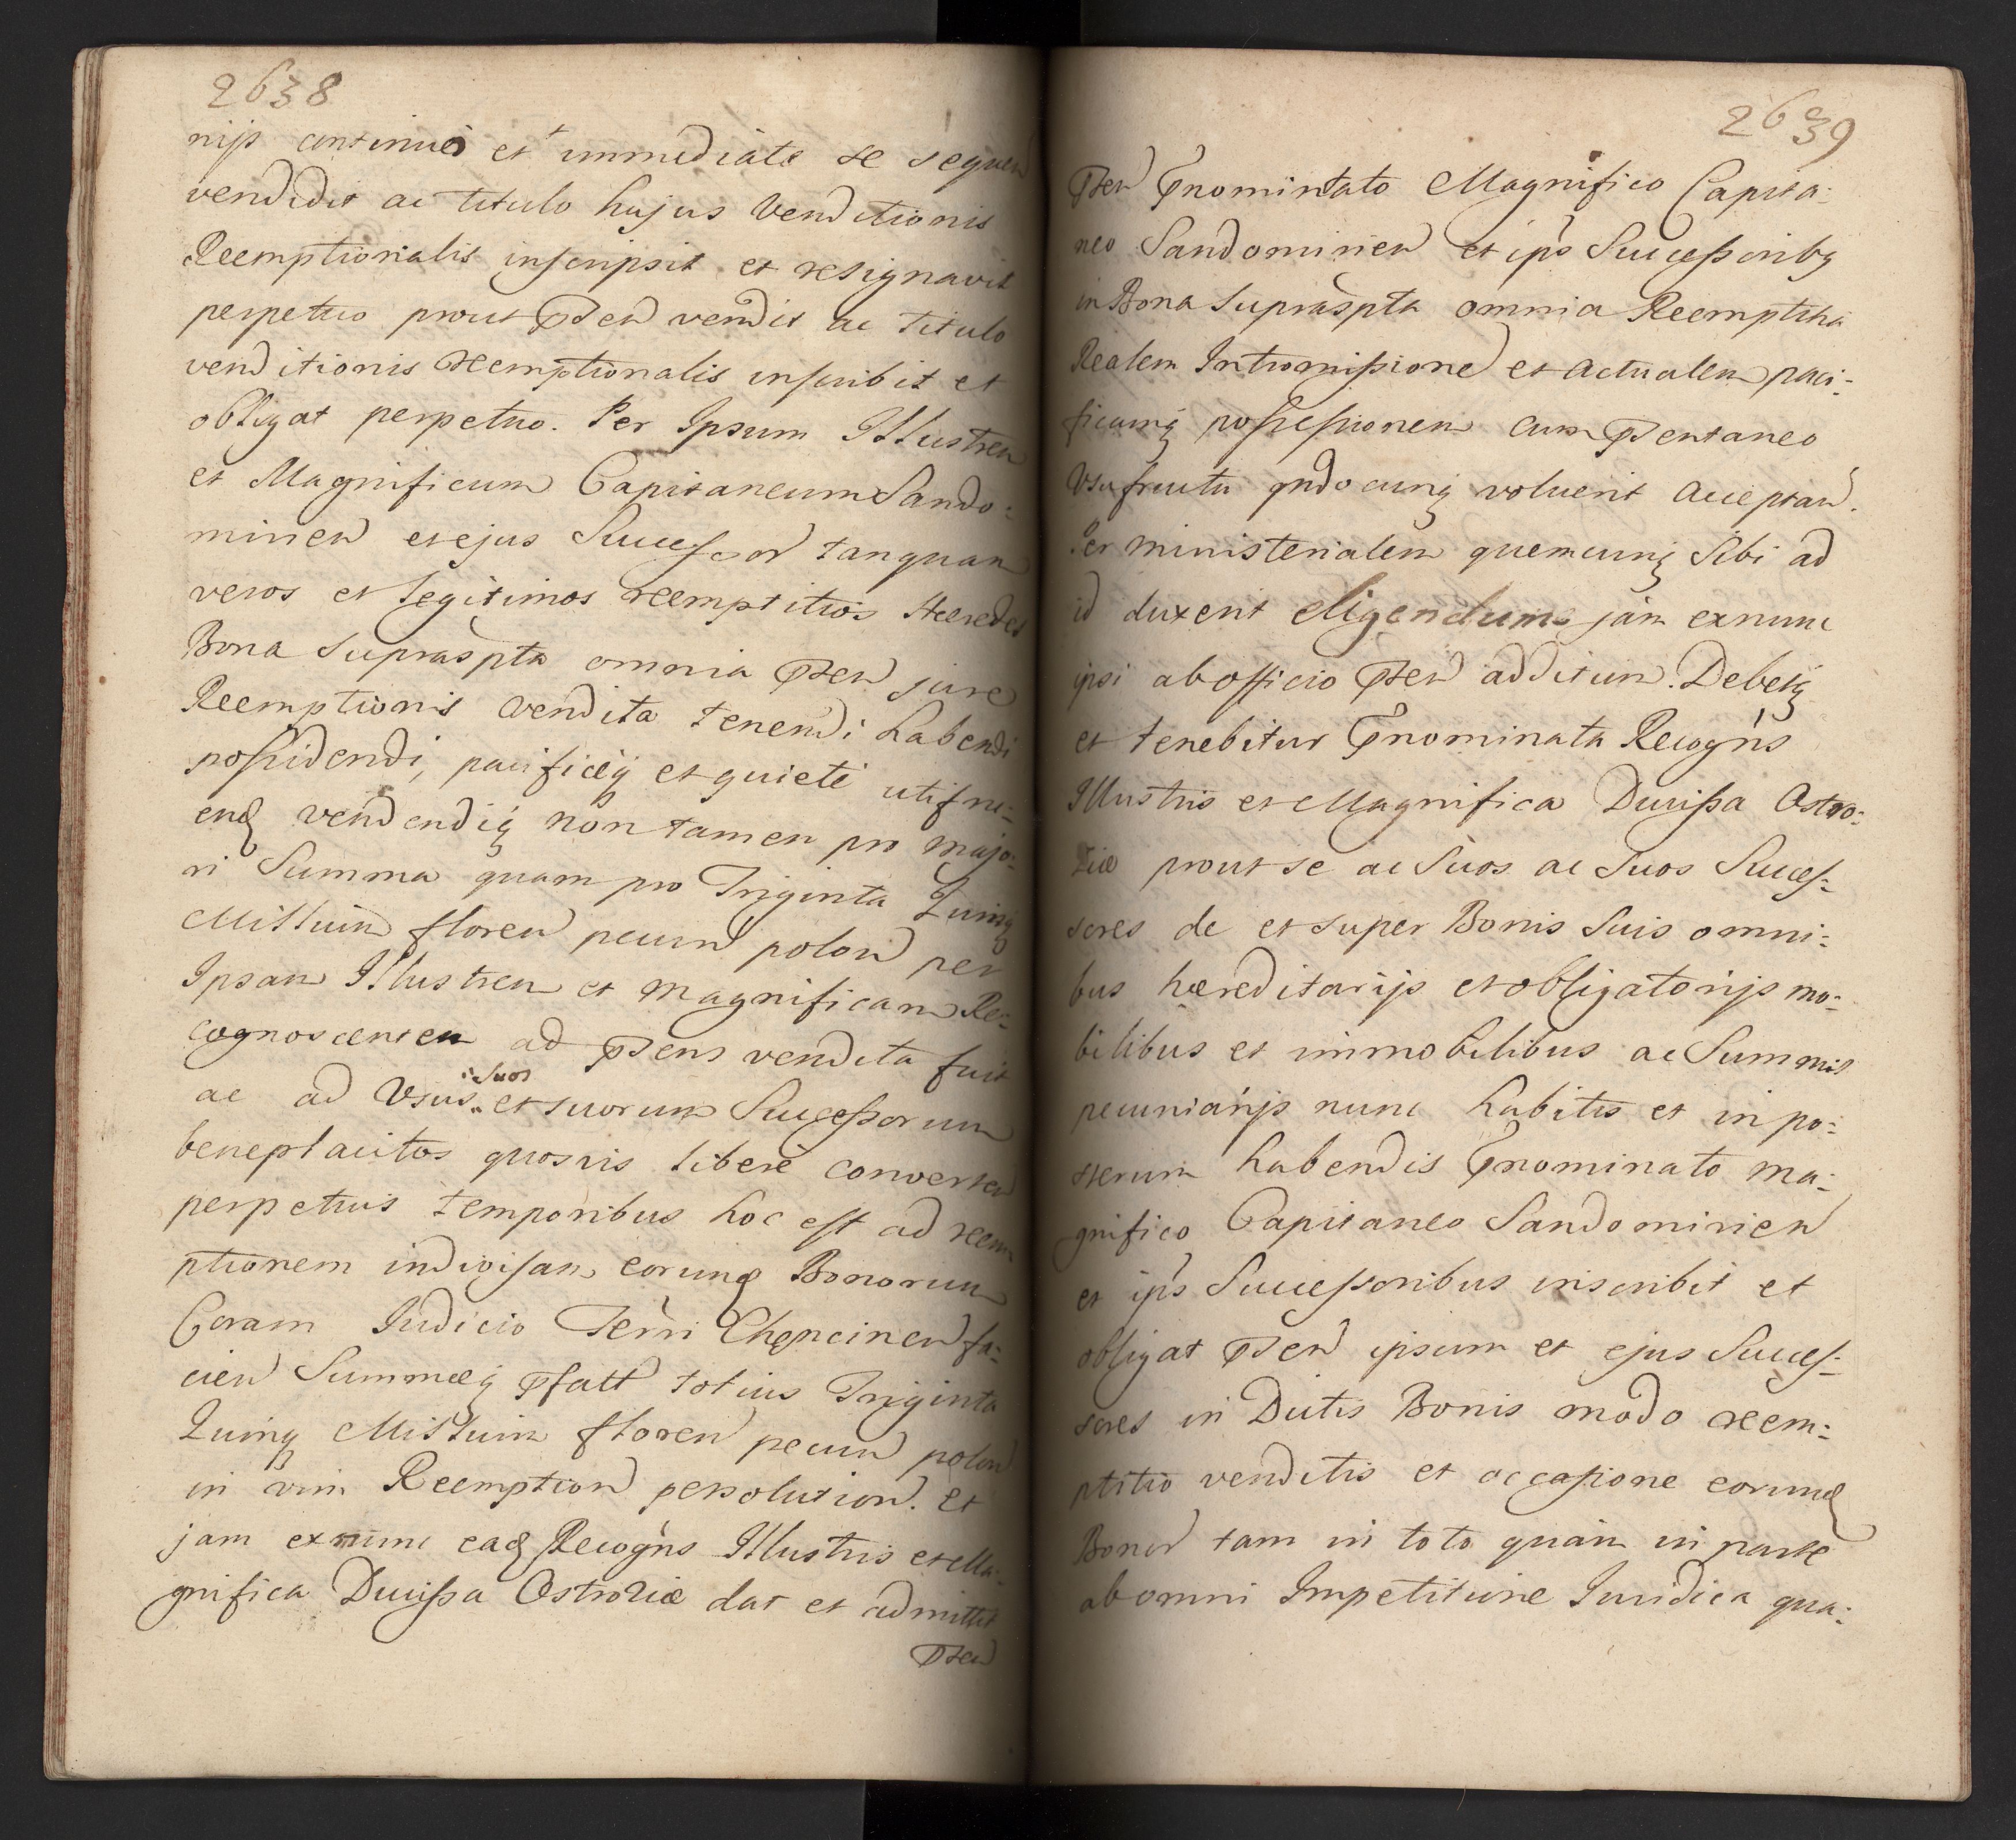 2638
nijs continuè et immediate se sequen
vendidit ac titulo hujus Venditionis
Reemptionalis inscripsit et resignavit
perpetuo prout Pnsen vendit ac titulo
venditionis reemptionalis inscribit et
obligat perpetuo. Per Ipsum Illustrem
et Magnificum Capitaneum Sando:
mirien et ejus Successor tanquam
veros et legitimos reemptitios Hæredes
Bona supraspta omnia Pnsen jure
Reemptionis vendita tenendi habendi
possidendi, pacificeq et quiete utifru:
end vendendiq non tamen pro majo:
ri Summa quam pro Triginta Quinq
Millium floren pecun polon per
Ipsam Illustrem et Magnificam Re:
cognoscentem ad Pnsens vendita fuit
ac ad Usus suos et suorum Successorum
beneplacitos quosvis libere converten
perpetuis temporibus hoc est ad reem
ptionem indivisam eorund Bonorum
Coram Judicio Terri Chencinen fa:
cien Summæq Pfatt totius Triginta
Quinq Millium floren pecun polon
in vim Reemption persolution. Et
jam exnunc ead Recogns Illustris et Ma:
gnifica Ducissa Ostroliæ dat et admittit
Pnsen
2639
Pnsen Pnominato Magnifico Capita:
neo Sandomirien et ips Successoribq
in Bona supraspta omnia Reemptitia
Realem Intromissione et actualem paci:
ficamq possessionem cum Pnsentaneo
Usufructu qndocunq voluerit acceptan.
Per ministerialem quemcunq sibi ad
id duxerit eligendum jam exnunc
ipsi ab officio Pnsen additum. Debetq
et tenebitur Pnominata Recogns
Illustris et Magnifica Ducissa Ostro:
liæ prout se ac suos ac suos Succes:
sores de et super Bonis suis omni:
bus hæreditarijs et obligatorijs mo:
bilibus et immobilibus ac Summis
pecuniarijs nunc habitis et in po:
sterum habendis Pnominato Ma:
gnifico Capitaneo Sandomirien
et ips Successoribus inscribit et
obligat Pnsen ipsum et ejus Succes:
sores in Dictis Bonis modo reem:
ptitio venditis et occasione eorund
Bonor tam in toto quàm in parte
ab omni Impetitione Juridica qua: